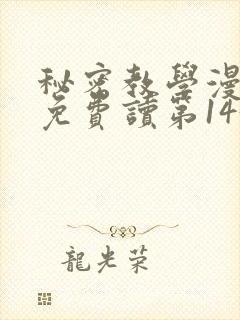 秘密教學漫
免費讀第14
龍光荣